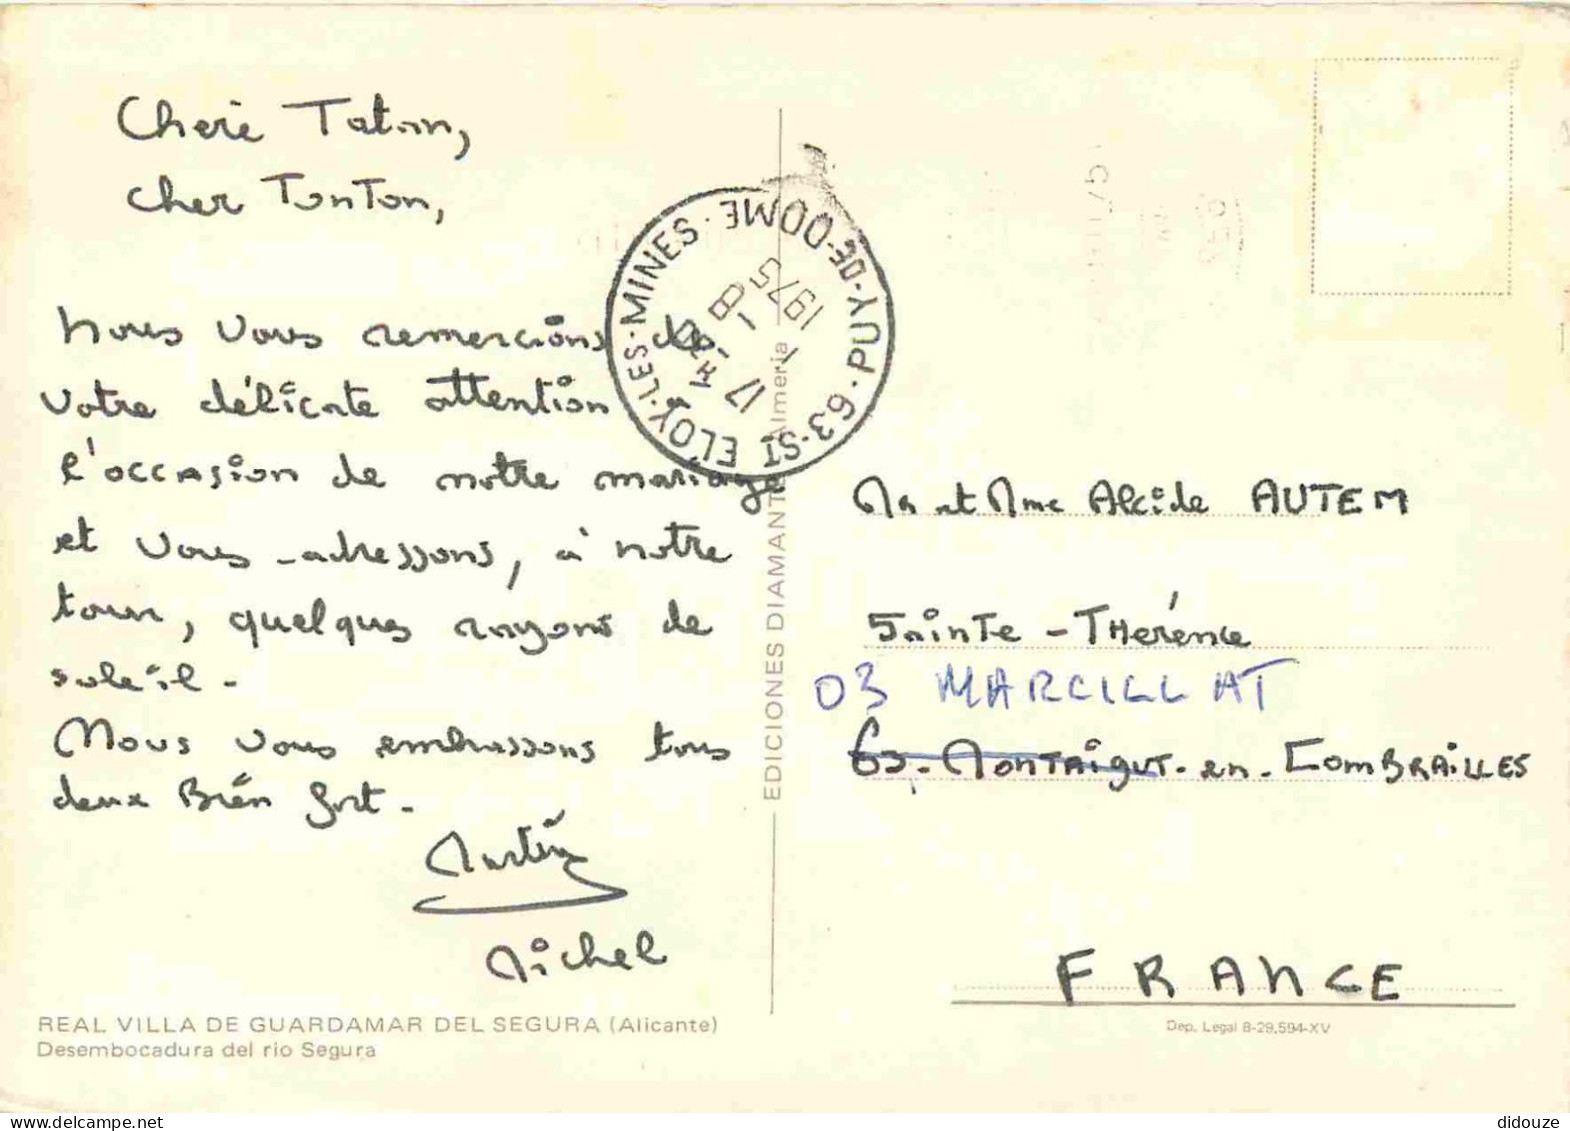 Cherè Tatan,
cher TonTon,
nous vous remercions de
votre délicate attention à
l'occasion de notre mariage
et vous adressons, à notre
tour, quelques rayons de
soleil.
Nous vous embrassons tous
deux Bien fort.
Martine
Michel
REAL VILLA DE GUARDAMAR DEL SEGURA (Alicante)
Desembocadura del rio Segura
63-ST ELOY-LES-MINES · PUY-DE-DOME
17 H
8 - 1
1975
EDICIONES DIAMANTE Almeria
Mr et Mme Alcide AUTEM
Sainte-Thérence
03 MARCILLAT
63-Montaigut-en-COMBRAILLES
FRANCE
Dep. Legal B-29.594-XV
didouze